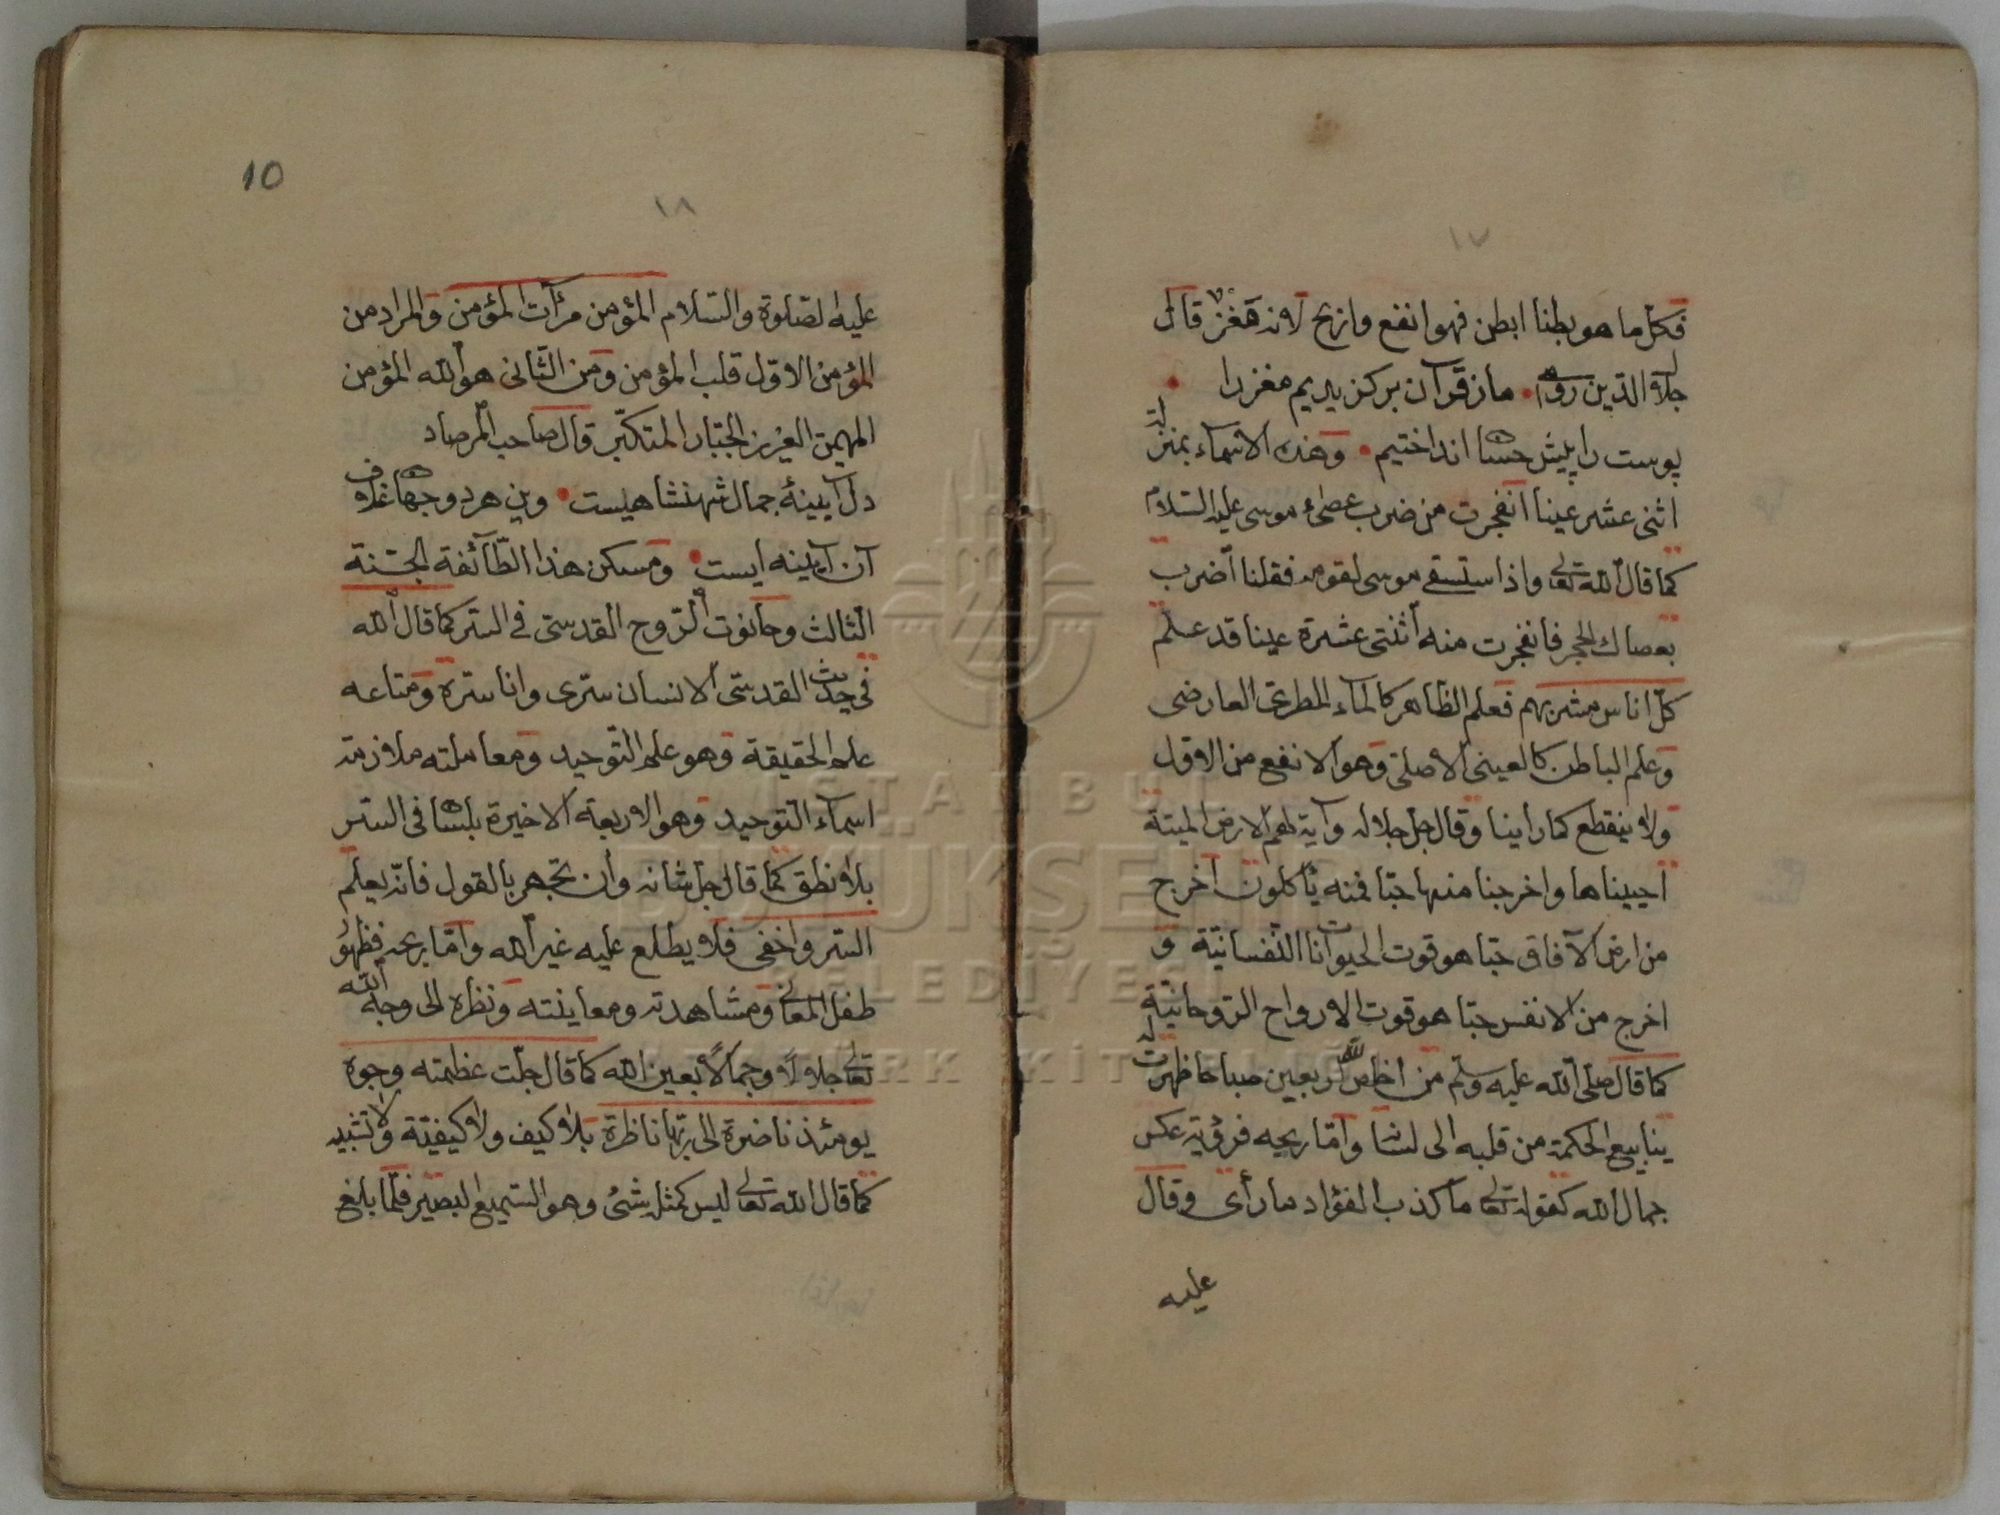 ١٧
فكل ما هو بطنا ابطن فهو انفع واربح لانه مغز قال
جلال الدين رومى ما ز قرآن بركزيديم مغز را
پوست را پيش حسا انداختيم وهذه الاسماء بمنزلة
اثنى عشر عينا انفجرت من ضرب عصاء موسى عليه السلام
كما قال الله تعالى واذ استسقى موسى لقومه فقلنا اضرب
بعصاك الحجر فانفجرت منه اثنتى عشرة عينا قد علم
كل اناس مشربهم فعلم الظاهر كالماء المطرى العارضى
وعلم الباطن كالعينى الاصلى وهو الانفع من الاول
ولا ينقطع كما راينا وقال جل جلاله وآية لهم الارض الميتة
احييناها واخرجنا منها حبا فمنه يأكلون اخرج
من ارض الآفاق حبا هو قوت الحيوانات النفسانية و
اخرج من الانفس حبا هو قوت الارواح الروحانية
كما قال صلى الله عليه وسلم من اخلص لله اربعين صباحا ظهرت له
ينابيع الحكمة من قلبه الى لسانه واما ربحه فرؤية عكس
جمال الله كقوله تعالى ما كذب الفؤاد ما رأى وقال
عليه
10
١٨
عليه الصلوة والسلام المؤمن مرآت المؤمن والمراد من
المؤمن الاول قلب المؤمن ومن الثانى هو الله المؤمن
المهيمن العزيز الجبار المتكبر قال صاحب المرصاد
دل آيينۀ جمال شهنشاهيست وين هر دو جهان غلاف
آن آيينه ايست ومسكن هذا الطائفة الجنة
الثالث وحانوت الروح القدسى فى السر كما قال الله
فى حديث القدسى الانسان سرى وانا سره ومتاعه
علم الحقيقة وهو علم التوحيد ومعاملته ملازمة
اسماء التوحيد وهو الاربعة الاخيرة بلسان فى السر
بلا نطق كما قال جل شانه وان تجهر بالقول فانه يعلم
السر واخفى فلا يطلع عليه غير الله واما ربحه فظهور
طفل المعانى ومشاهدته ومعاينته ونظره الى وجه الله
تعالى جلالا وجمالا بعين الله كما قال جلت عظمته وجوه
يومئذ ناضرة الى ربها ناظرة بلا كيف ولا كيفية ولا تشبيه
كما قال الله تعالى ليس كمثله شئ وهو السميع البصير فلما بلغ